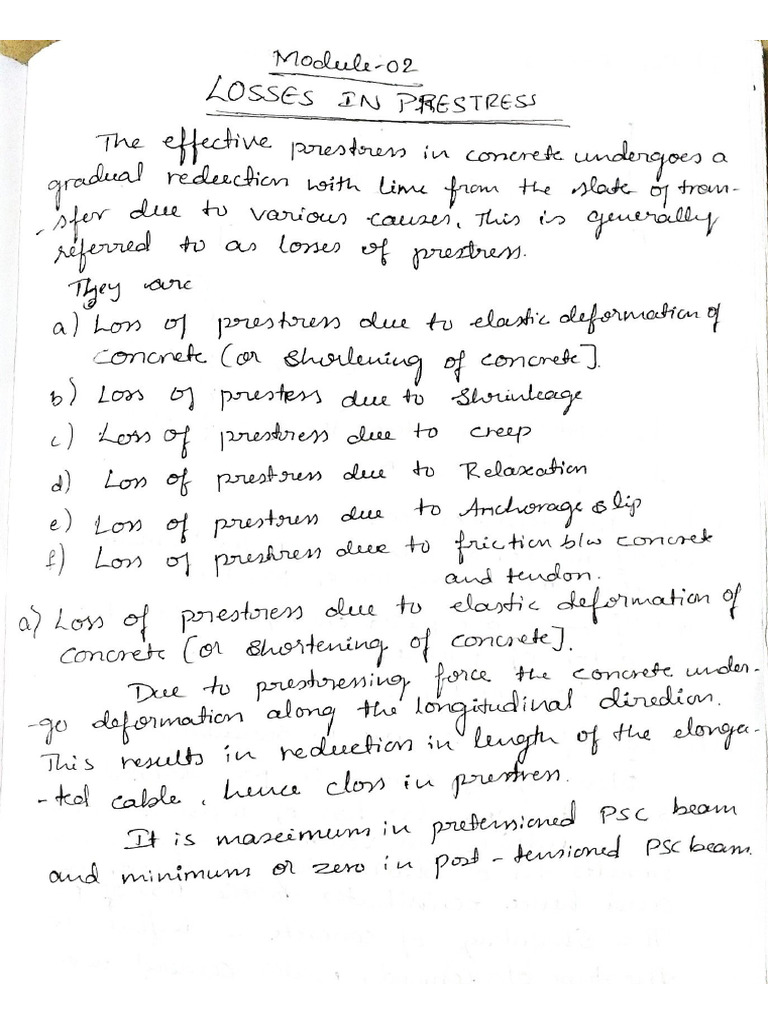 Module-02
LOSSES IN PRESTRESS
The effective prestress in concrete undergoes a
gradual reduction with time from the state of tran-
-sfer due to various causes. This is generally
referred to as losses of prestress.
They are
a) Loss of prestress due to elastic deformation of
concrete (or shortening of concrete].
b) Loss of prestess due to Shrinkage
c) Loss of prestress due to creep
d) Loss of prestress due to Relaxation
e) Loss of prestress due to Anchorage slip
f) Loss of prestress due to friction b/w concrete
and tendon.
a) Loss of prestress due to elastic deformation of
concrete [or shortening of concrete].
Due to prestressing force the concrete under-
-go deformation along the longitudinal direction.
This results in reduction in length of the elonga-
-ted cable, hence closs in prestress.
It is maximum in pretensioned PSC beam
and minimum or zero in post-tensioned PSC beam.